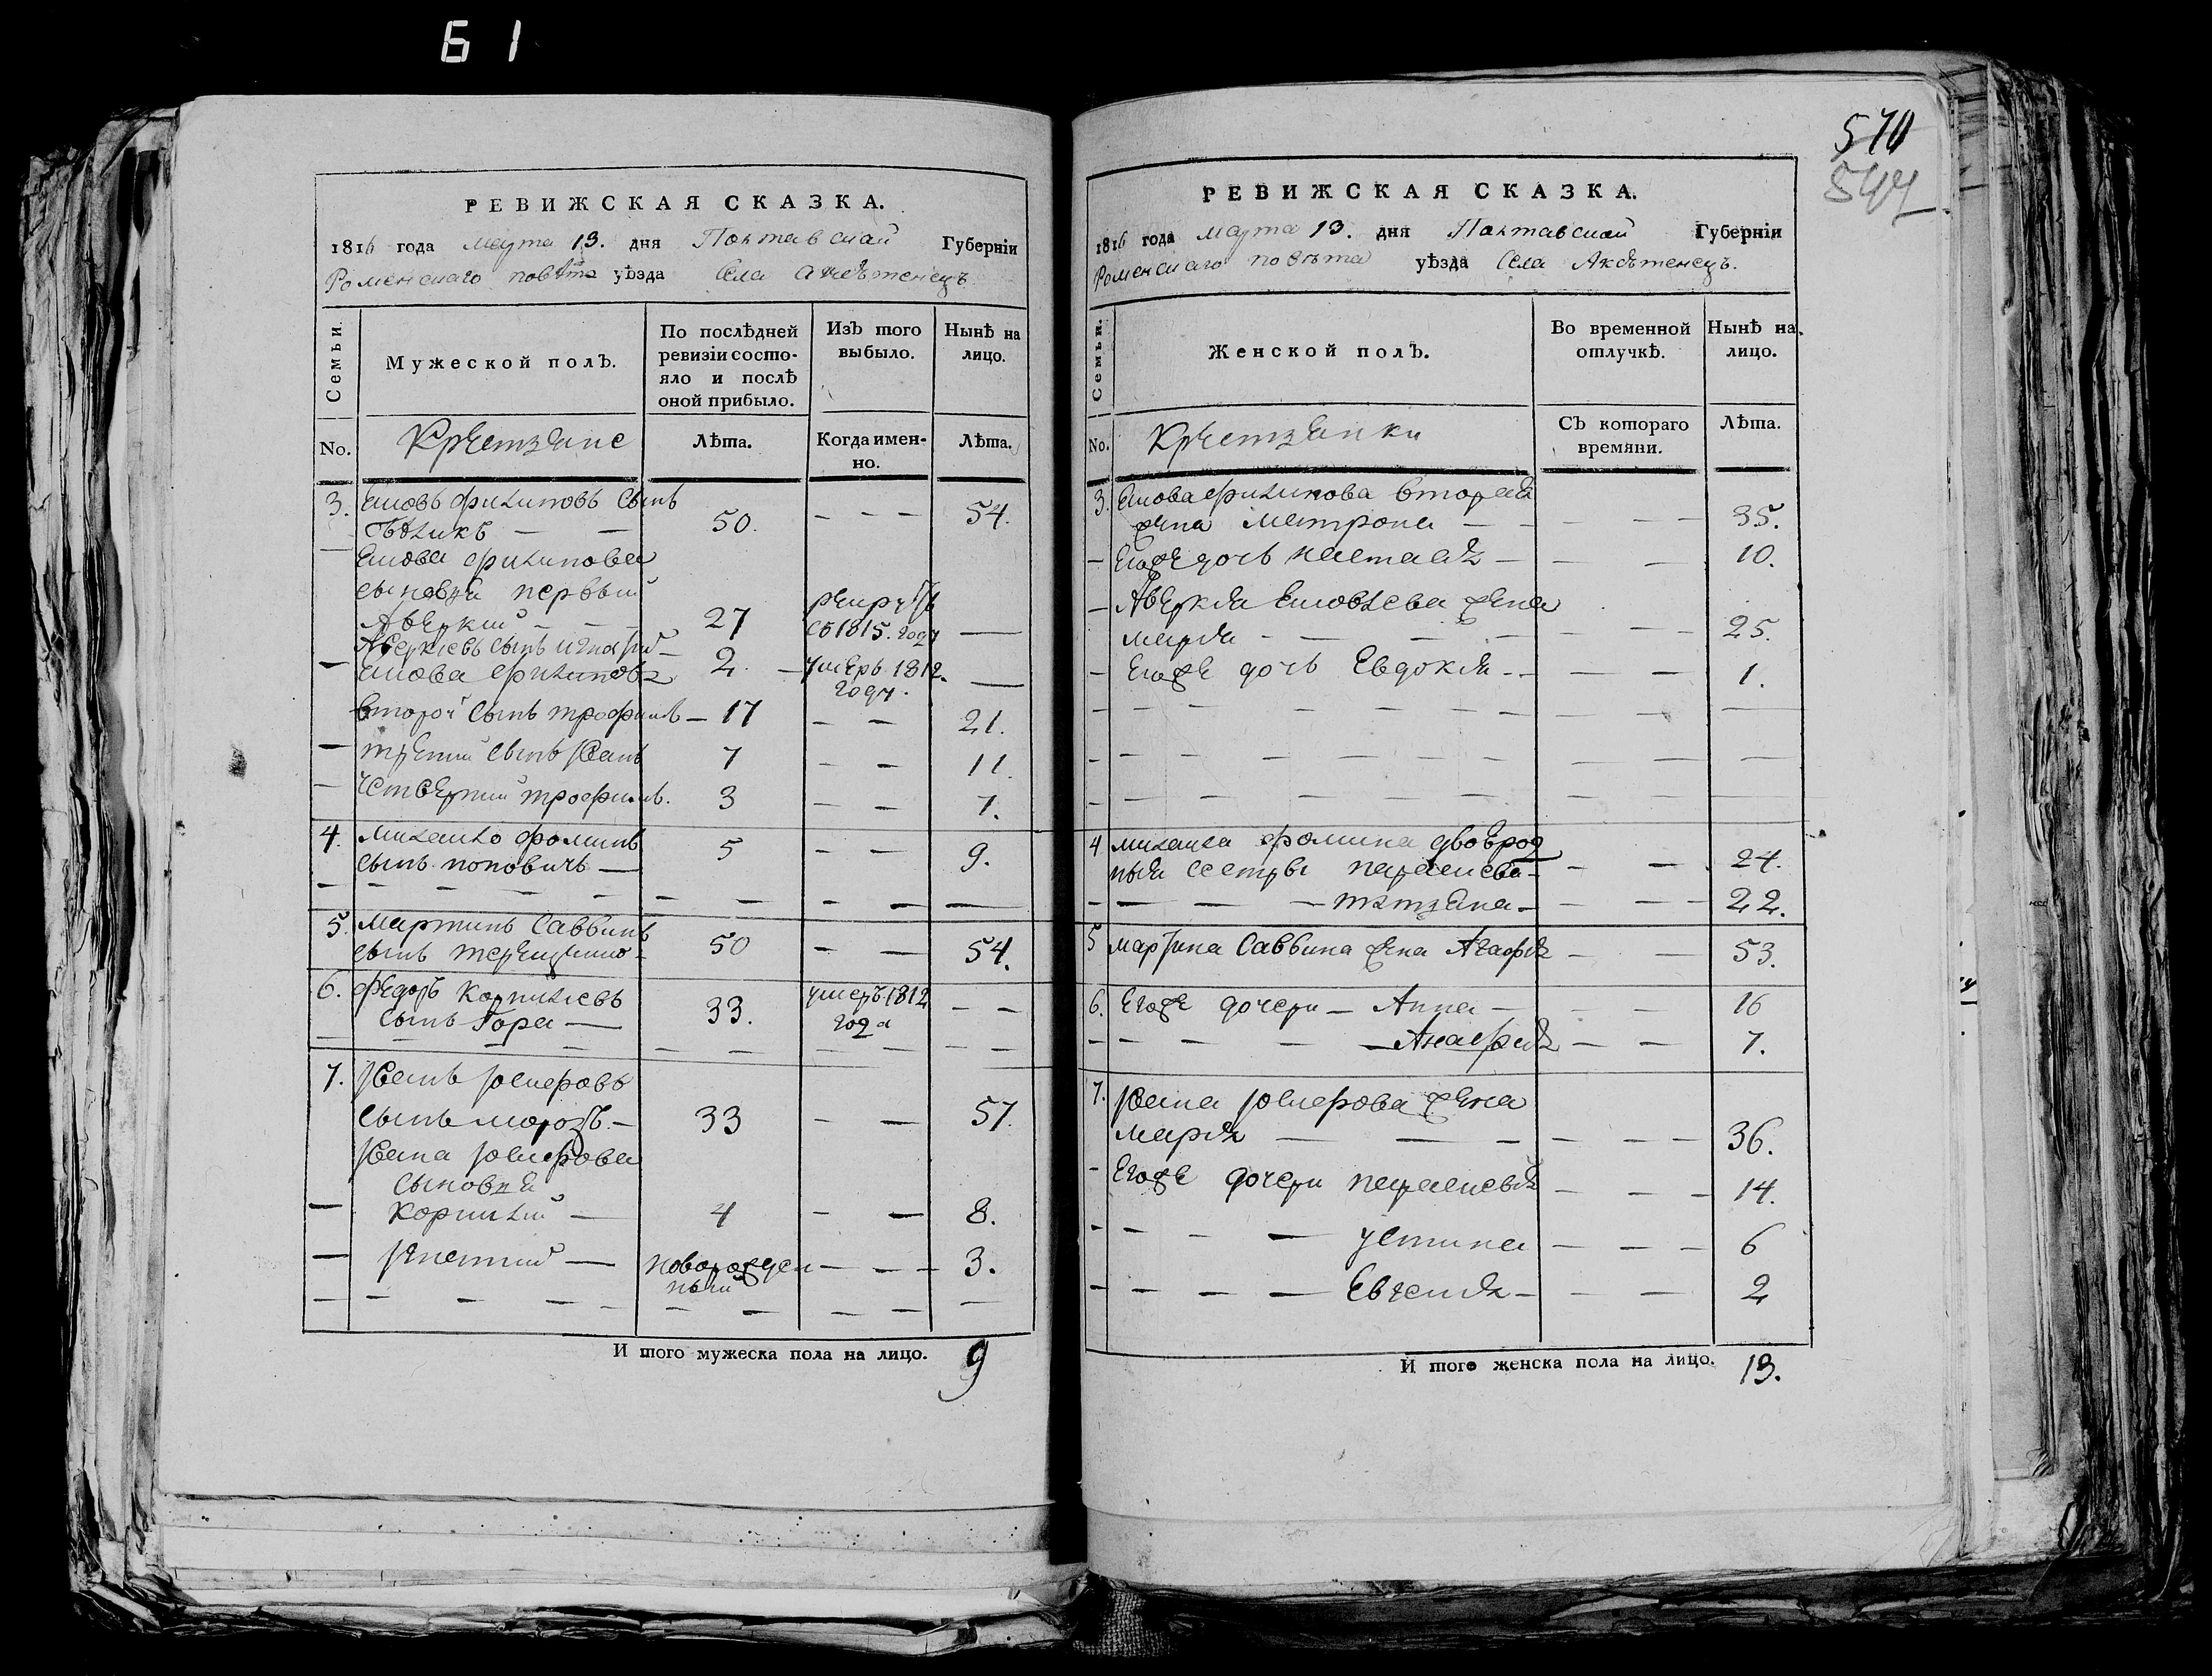 61
570
544
РЕВИЖСКАЯ СКАЗКА.
1816 года марта 13. дня Полтавской Губерніи
Роменскаго повѣта уѣзда Села
Семьи.
Мужеской полЪ.
По послѣдней ревизіи состо-
яло и послѣ
оной прибыло.
ИзЪ того
выбыло.
Нынѣ на
лицо.
No.
Крестяне
Лѣта.
Когда имен-
но.
Лѣта.
3. Яковъ Филиповъ сынъ
Бѣликъ — — 50. — — — 54.
— Якова Филипова
сыновья первый
Аверкий — — — 27 рекрутъ
съ 1815. году —
Аверкіевъ сынъ — 2. — умеръ 1812.
году. —
— Якова Филипова
второй сынъ Трофимъ — 17 — — 21.
— третий сынъ Иванъ 7 — — 11.
— четвертий Трофимъ. 3 — — 7.
4. Михайло Фоминъ
сынъ Поповичъ — 5 — — 9.
5. Мартинъ Саввинъ
сынъ 50 — — 54.
6. Федоръ Корнилієвъ
сынъ Гора — 33. умеръ 1812
года — —
7. Иванъ
сынъ Морозъ. — 33 — — 57.
Ивана
сыновья
— Корнилий — 4 — — 8.
— Игнатий — новорожден
ный — — — 3.
И того мужеска пола на лицо. 9
РЕВИЖСКАЯ СКАЗКА.
1816 года марта 13. дня Полтавской Губерніи
Роменскаго повѣта уѣзда Села
Семьи.
Женской полЪ.
Во временной
отлучкѣ.
Нынѣ на
лицо.
No.
Крестянки
СЪ котораго
времяни.
Лѣта.
3. Якова Филипова вторая
жена Матрона — — — — 35.
— Егоже дочь Настася — — — 10.
— Аверкія Яковлева жена
Марія — — — — 25.
— Егоже дочь Евдокія — — — — 1.
4 Михайла Фомина двоюрод
ныя сестры Параскева — — — 24.
— Тятяна — — — — 22.
5 Мартина Саввина жена Агафія — — 53.
6. Егоже дочери — Анна — — — 16
— — — — — — — 7.
7. Ивана жена
Марія — — — — — — 36.
— Егоже дочери Параскевія — — — 14.
— — — Устина — — — 6
— — — — Евгенія — — — 2
И того женска пола на лицо. 13.